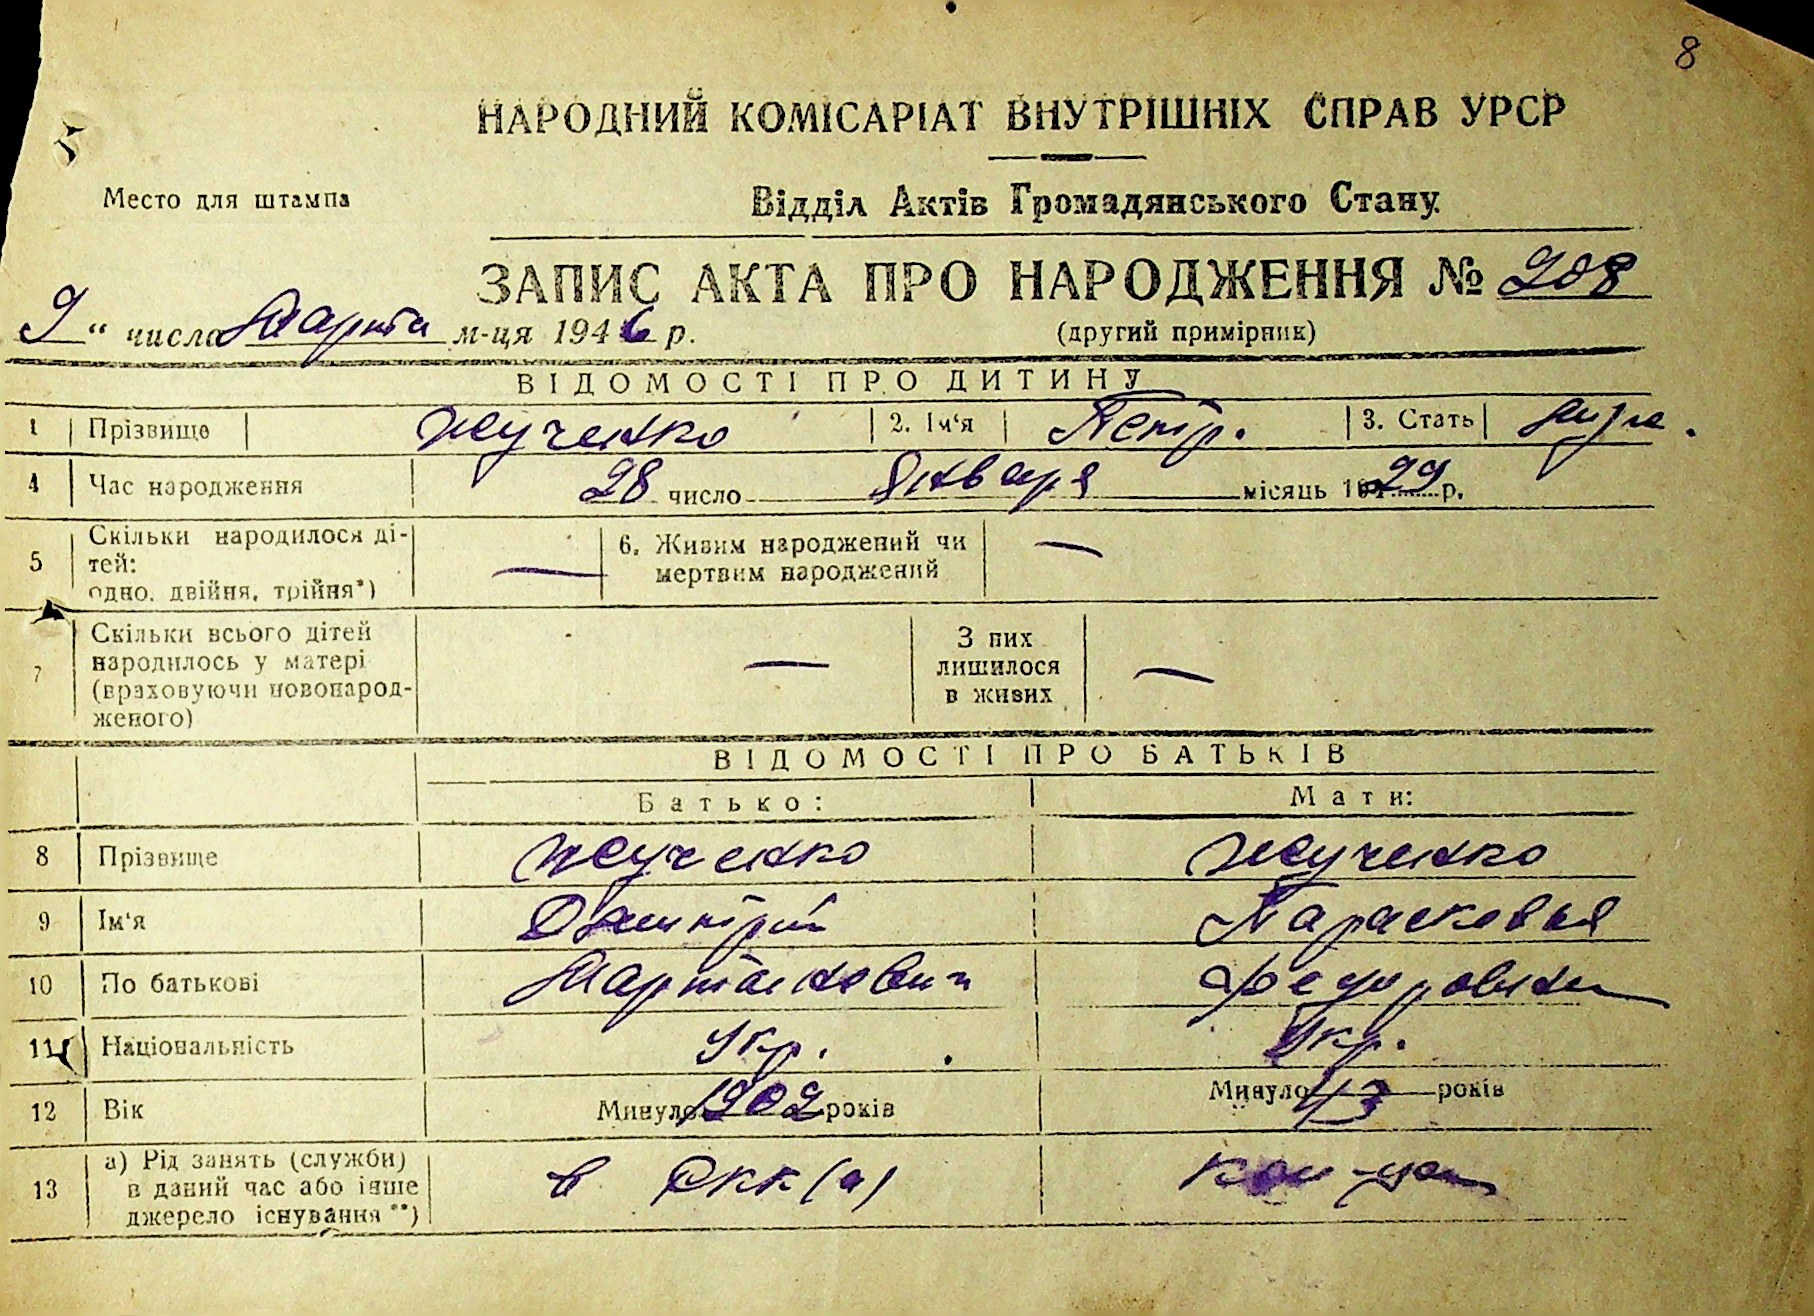 8
НАРОДНИЙ КОМІСАРІАТ ВНУТРІШНІХ СПРАВ УРСР
Место для штампа
Відділ Актів Громадянського Стану.
ЗАПИС АКТА ПРО НАРОДЖЕННЯ № 208
9 " числа Марта м-ця 1946 р.
(другий примірник)
ВІДОМОСТІ ПРО ДИТИНУ
1 Прізвище Жученко 2. Ім'я Петр. 3. Стать муж.
4 Час народження 28 число Января місяць 1929 р.
5 Скільки народилося ді-
тей:
одно, двійня, трійня*) —
6. Живим народжений чи
мертвим народжений —
7 Скільки всього дітей
народилось у матері
(враховуючи новонарод-
женого) —
З них
лишилося
в живих —
ВІДОМОСТІ ПРО БАТЬКІВ
Батько: Мати:
8 Прізвище Жученко Жученко
9 Ім'я Дмитрий Парасковья
10 По батькові Мартынович Федоровна
11 Національність Укр. Укр.
12 Вік Минуло 1902 років Минуло 43 років
13 а) Рід занять (служби)
в даний час або інше
джерело існування **)
в РКК(а)